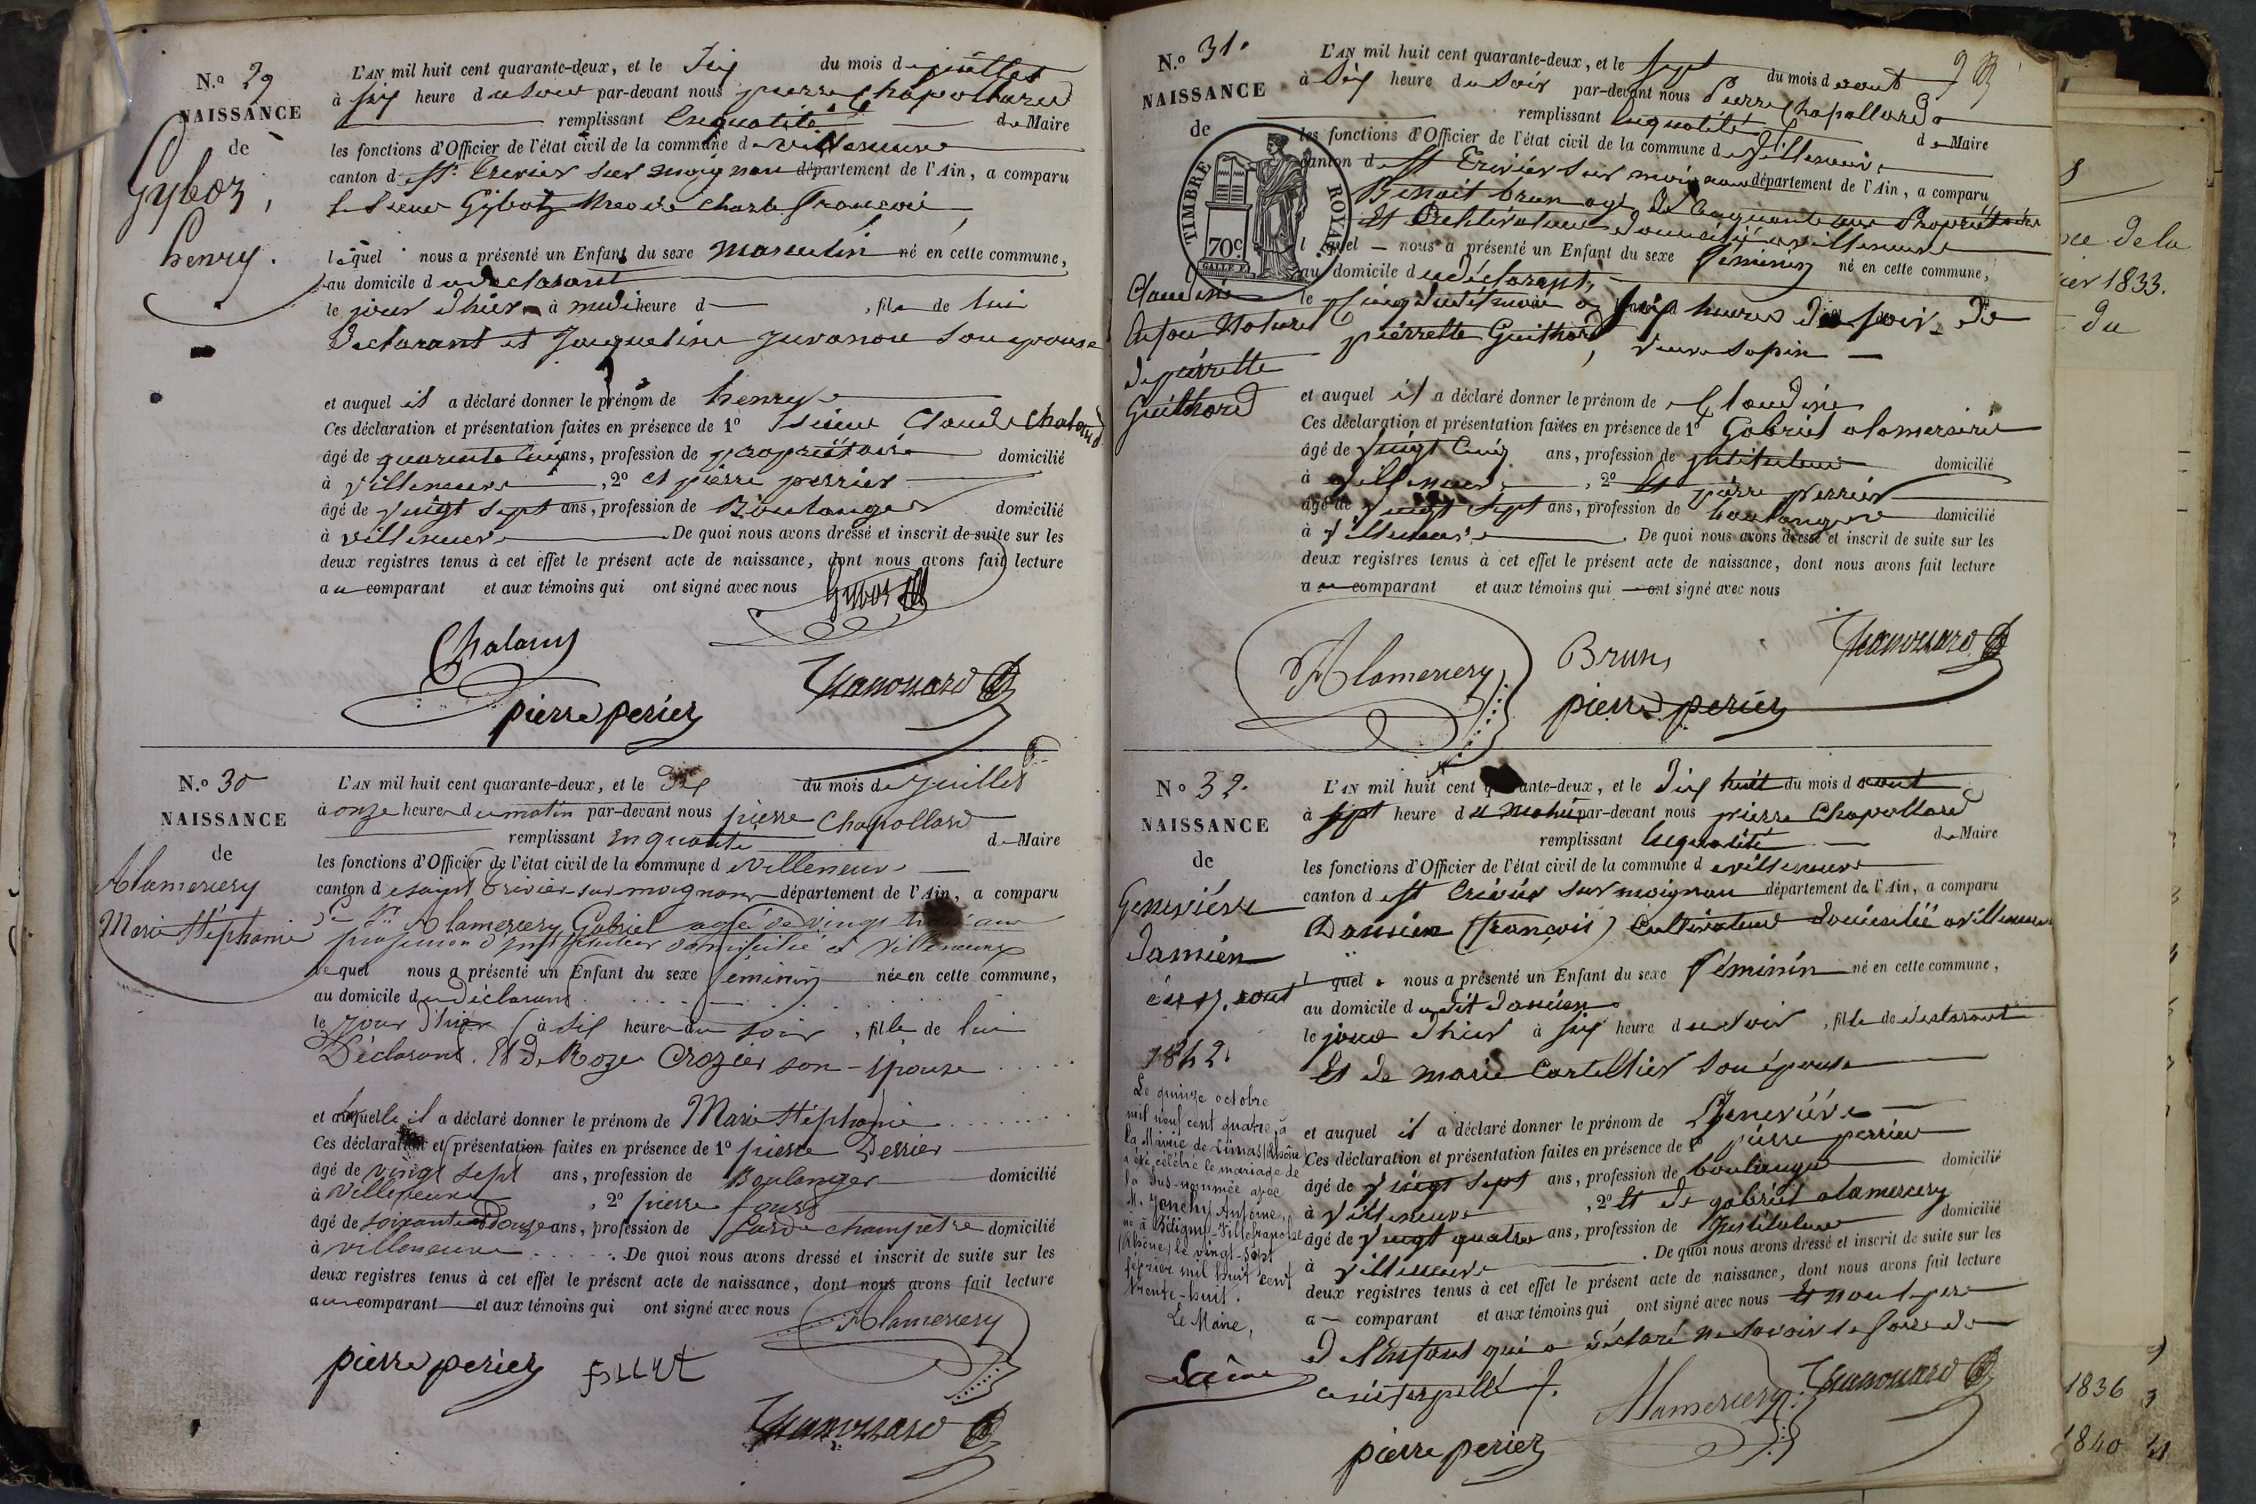 N.º 29
NAISSANCE
de
Gyboz,
henry.
L'AN mil huit cent quarante-deux, et le Six du mois de juillet
à six heure du Soir par-devant nous pierre Chapollard
remplissant Enqualité de Maire
les fonctions d'Officier de l'état civil de la commune de villeneuve
canton de St. Trivier sur moignan département de l'Ain, a comparu
le Sieur charle François
lequel nous a présenté un Enfant du sexe masculin né en cette commune,
au domicile du declarant
le jour d'hier à midi heure d , fils de lui
Declarant et Jacqueline son epouse
et auquel il a déclaré donner le prénom de henry
Ces déclaration et présentation faites en présence de 1º Sieur Claude Chaland
âgé de quarante cinq ans, profession de propriétaire domicilié
à villeneuve , 2º et pierre perrier
âgé de vingt sept ans, profession de Boulanger domicilié
à villeneuve De quoi nous avons dressé et inscrit de suite sur les
deux registres tenus à cet effet le présent acte de naissance, dont nous avons fait lecture
au comparant et aux témoins qui ont signé avec nous Gyboz
Chaland
pierre perier
N.º 30
NAISSANCE
de
Alamercery
Marie Stéphanie
L'AN mil huit cent quarante-deux, et le Dix du mois de Juillet
à onze heures du matin par-devant nous pierre Chapollard
remplissant En qualité de Maire
les fonctions d'Officier de l'état civil de la commune de Villeneuve
canton de saint Trivier sur moignans département de l'Ain, a comparu
Le Sr. Alamercery Gabriel agé de vingt ans
profession d'instituteur domicilié à Villeneuve
lequel nous a présenté un Enfant du sexe féminin née en cette commune,
au domicile du Déclarant
le jour d'hier à six heure du soir , fille de lui
Déclarant. Et De Roze Crozier son épouse
et à laquelle il a déclaré donner le prénom de Marie Stéphanie
Ces déclaration et présentation faites en présence de 1º pierre Perrier
âgé de vingt sept ans, profession de Boulanger domicilié
à Villeneuve , 2º pierre
âgé de soixante Douze ans, profession de Garde champêtre domicilié
à villeneuve De quoi nous avons dressé et inscrit de suite sur les
deux registres tenus à cet effet le présent acte de naissance, dont nous avons fait lecture
au comparant et aux témoins qui ont signé avec nous
Alamercery
pierre perier
N.º 31.
NAISSANCE
de
TIMBRE ROYAL
70 c
Claudine
Enfant Naturel
de pierrette
Guithard
L'AN mil huit cent quarante-deux, et le sept du mois d'aout
à Six heure du Soir par-devant nous Pierre Chapollard
remplissant enqualité de Maire
les fonctions d'Officier de l'état civil de la commune de Villeneuve
canton de St Trivier sur moignan département de l'Ain, a comparu
Benoit brun agé de Cinquante ans Propriétaire
Et Cultivateur domicilié a villeneuve
lequel nous a présenté un Enfant du sexe feminin né en cette commune,
au domicile du déclarant,
le Cinq dudit mois à Six heures du soir de
pierrette Guithard, veuve Sapin
et auquel il a déclaré donner le prénom de Claudine
Ces déclaration et présentation faites en présence de 1º Gabriel alamercerie
âgé de vingt cinq ans, profession de instituteur domicilié
à villeneuve , 2º Et pierre perrier
âgé de vingt sept ans, profession de boulanger domicilié
à villeneuve . De quoi nous avons dressé et inscrit de suite sur les
deux registres tenus à cet effet le présent acte de naissance, dont nous avons fait lecture
au comparant et aux témoins qui ont signé avec nous
Alamercery
Brun
pierre perier
Nº 32.
NAISSANCE
de
Geneviéve
Damien
du 17. aout
1842.
Le quinze octobre
mil neuf cent quatre, à
la Mairie de Limas (Rhône)
a été célébré le mariage de
la sus-nommée avec
M. Jonchy Antoine,
né à Béligny-Villefranche
(Rhône) le vingt-sept
février mil huit cent
trente-huit.
Le Maire,
L'AN mil huit cent quarante-deux, et le Dix huit du mois d'aout
à sept heure du Matin par-devant nous pierre Chapollard
remplissant Enqualité de Maire
les fonctions d'Officier de l'état civil de la commune de villeneuve
canton de St trivier sur moignan département de l'Ain, a comparu
Damien (françois) Cultivateur domicilié a villeneuve
lequel nous a présenté un Enfant du sexe féminin né en cette commune,
au domicile du dit damien
le jour d'hier à six heure du soir , fille de declarant
Et de marie Cartellier son épouse
et auquel il a déclaré donner le prénom de Geneviéve
Ces déclaration et présentation faites en présence de 1º pierre perrier
âgé de vingt sept ans, profession de boulanger domicilié
à villeneuve , 2º Et de gabriel alamercery
âgé de vingt quatre ans, profession de Instituteur domicilié
à villeneuve . De quoi nous avons dressé et inscrit de suite sur les
deux registres tenus à cet effet le présent acte de naissance, dont nous avons fait lecture
a comparant et aux témoins qui ont signé avec nous Et non le pere
de l'Enfant qui a déclaré ne savoir le faire de
ce interpellé.
Alamercery
pierre perier
ce de la
1833.
du
1836
1840